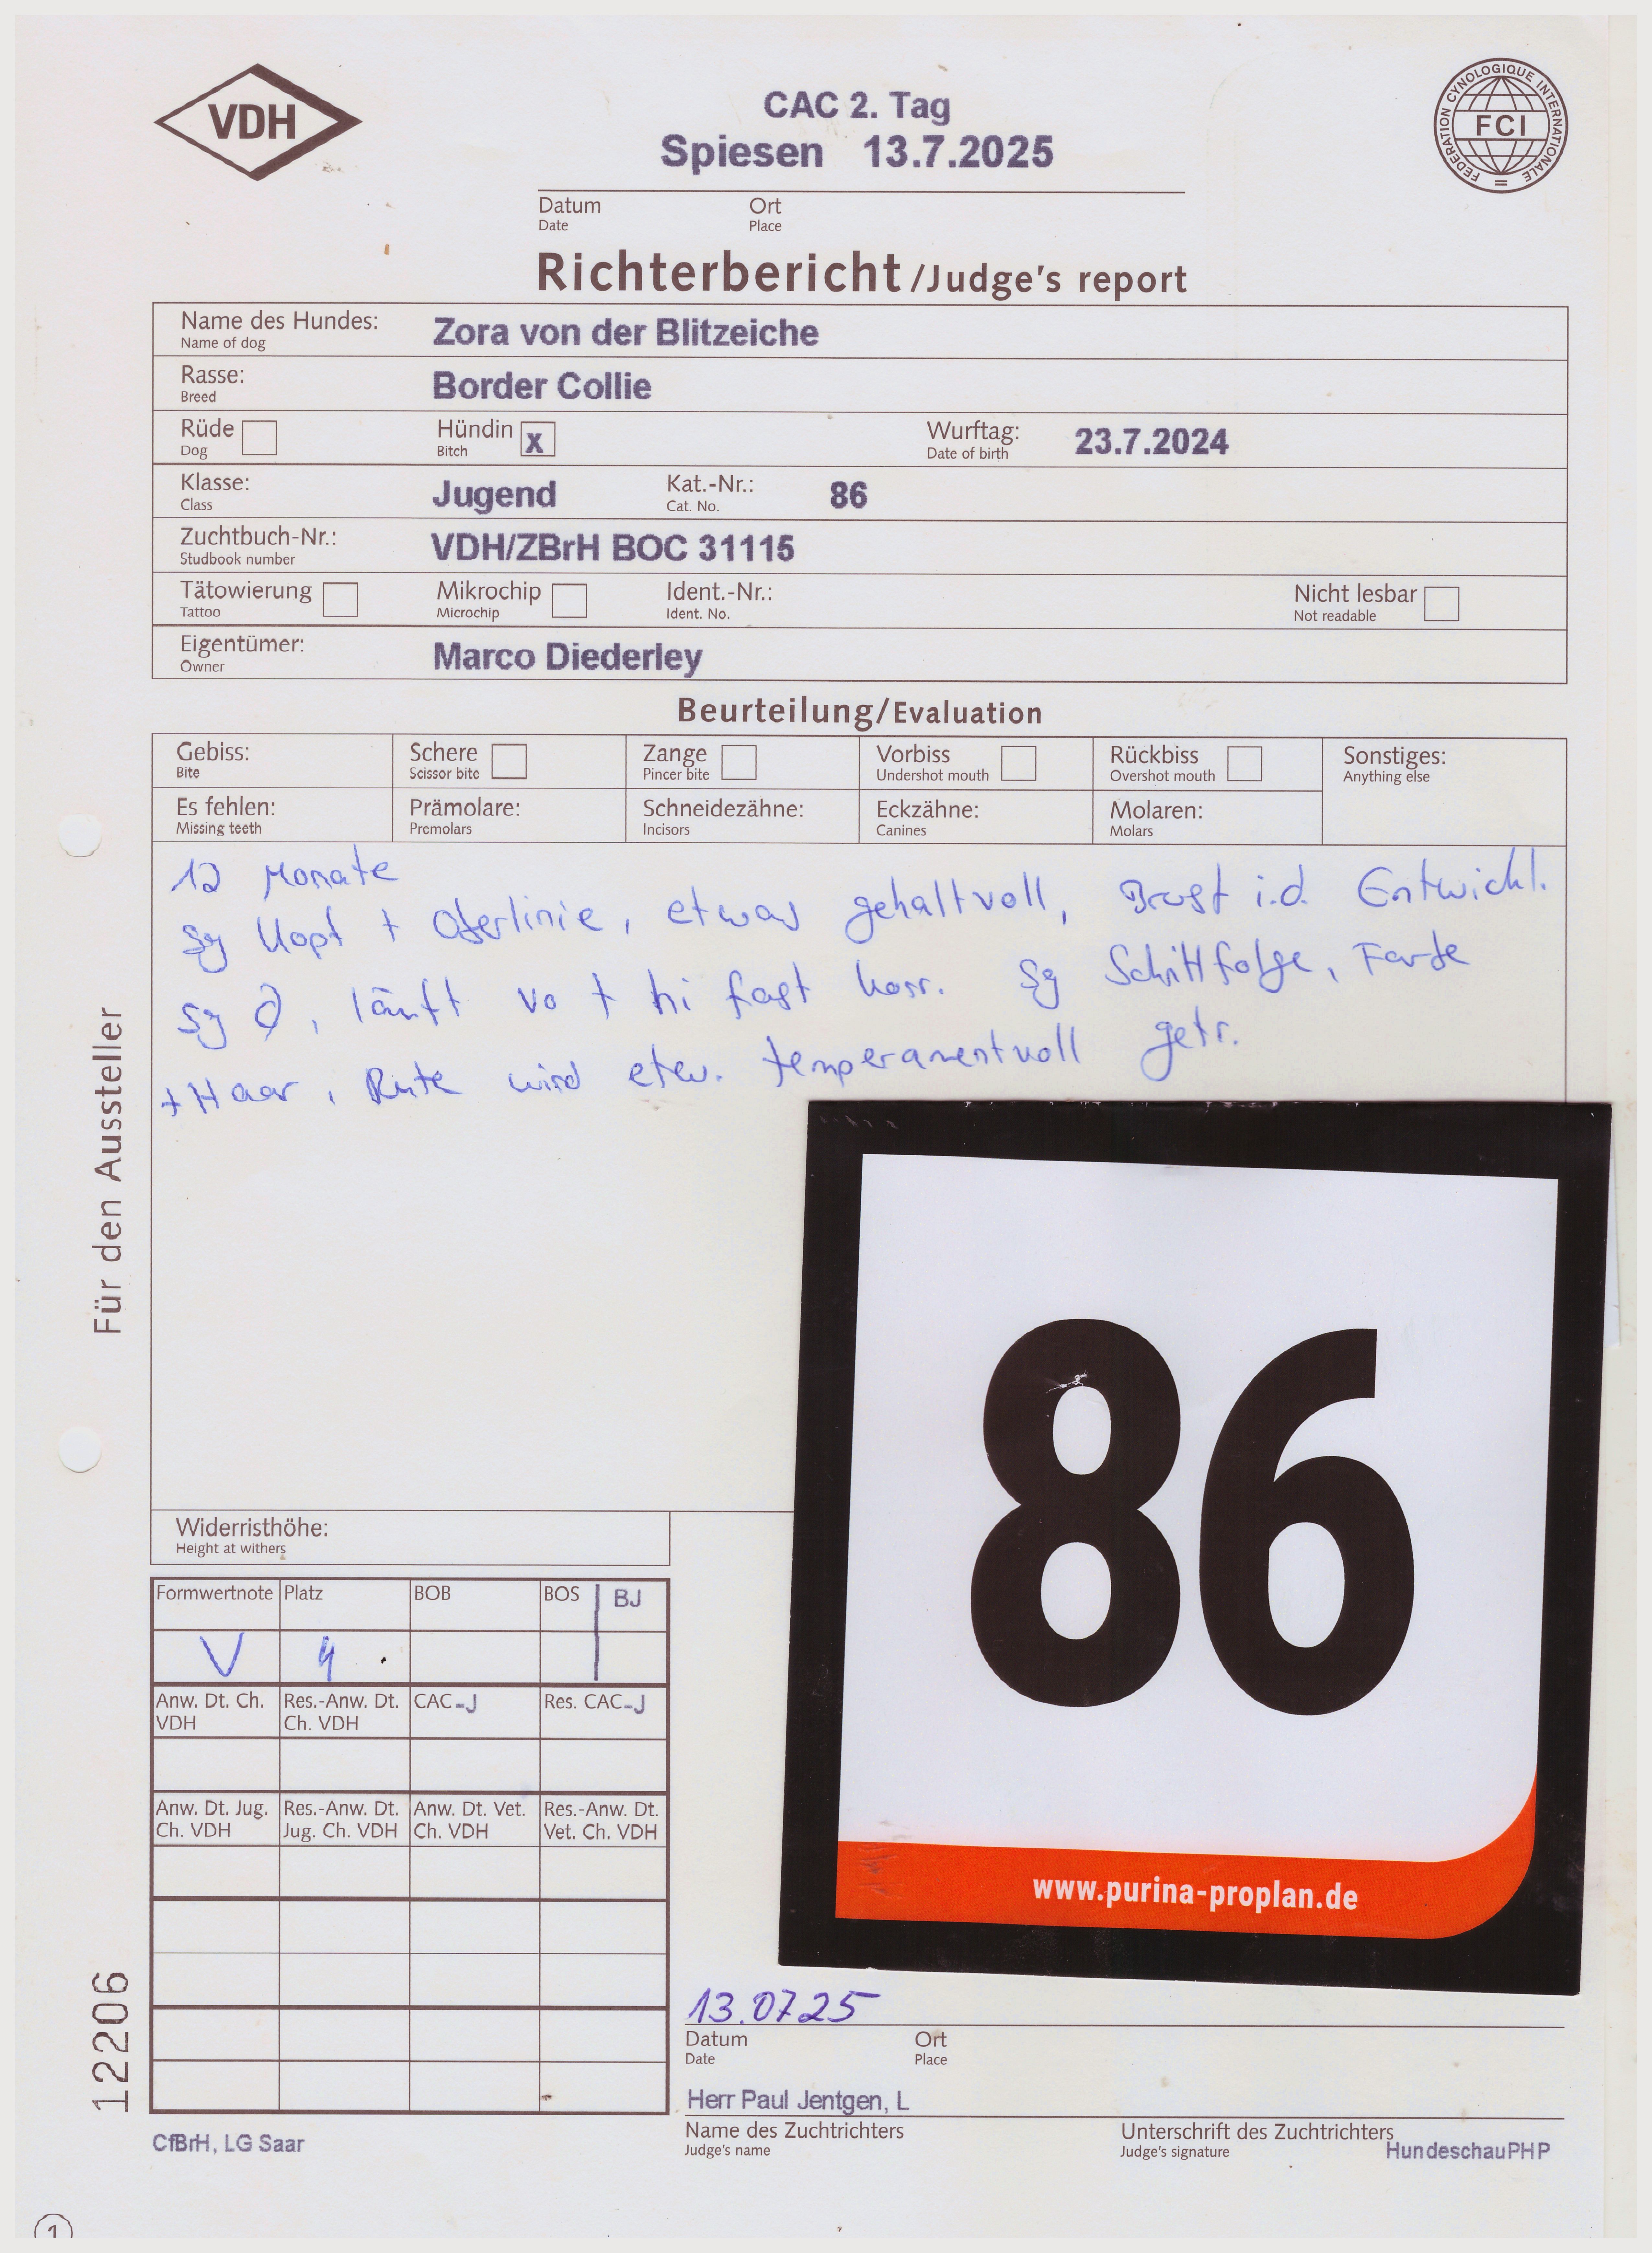 VDH
CAC 2. Tag
Spiesen 13.7.2025
FEDERATION CYNOLOGIQUE INTERNATIONALE
FCI
Datum Ort
Date Place
Richterbericht /Judge's report
Name des Hundes: Zora von der Blitzeiche
Name of dog
Rasse: Border Collie
Breed
Rüde Hündin x Wurftag: 23.7.2024
Dog Bitch Date of birth
Klasse: Jugend Kat.-Nr.: 86
Class Cat. No.
Zuchtbuch-Nr.: VDH/ZBrH BOC 31115
Studbook number
Tätowierung Mikrochip Ident.-Nr.: Nicht lesbar
Tattoo Microchip Ident. No. Not readable
Eigentümer: Marco Diederley
Owner
Beurteilung/Evaluation
Gebiss: Schere Zange Vorbiss Rückbiss Sonstiges:
Bite Scissor bite Pincer bite Undershot mouth Overshot mouth Anything else
Es fehlen: Prämolare: Schneidezähne: Eckzähne: Molaren:
Missing teeth Premolars Incisors Canines Molars
12 Monate
sg Kopf + Oberlinie, etwas gehaltvoll, Brust i.d. Entwickl.
sg , läuft vo + hi fast korr. sg Schrittfolge, Farbe
+ Haar, Rute wird etw. temperamentvoll getr.
Für den Aussteller
86
www.purina-proplan.de
Widerristhöhe:
Height at withers
Formwertnote Platz BOB BOS BJ
V 4
Anw. Dt. Ch. VDH Res.-Anw. Dt. Ch. VDH CAC-J Res. CAC-J
Anw. Dt. Jug. Ch. VDH Res.-Anw. Dt. Jug. Ch. VDH Anw. Dt. Vet. Ch. VDH Res.-Anw. Dt. Vet. Ch. VDH
12206
13.07.25
Datum Ort
Date Place
Herr Paul Jentgen, L
Name des Zuchtrichters Unterschrift des Zuchtrichters
Judge's name Judge's signature
CfBrH, LG Saar HundeschauPHP
1